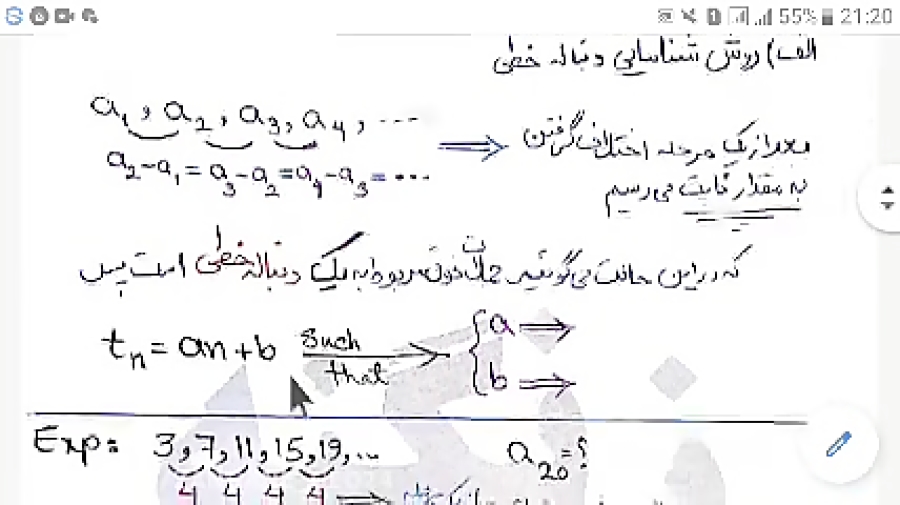 55% 21:20
الف) روش شناسایی دنباله خطی
a₁, a₂, a₃, a₄, ...
a₂-a₁ = a₃-a₂ = a₄-a₃ = ...
⇒ بعد از یک مرحله اختلاف گرفتن
به مقدار ثابت می رسیم
که در این حالت می گوئیم جملات فوق مربوط به یک دنباله خطی است پس
tₙ = an + b such that → { a ⇒
b ⇒
Exp: 3, 7, 11, 15, 19, ... a₂₀ = ؟
4 4 4 4 ⇒